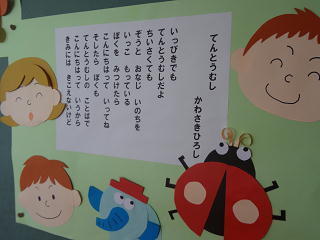 てんとうむし
かわさきひろし
いっぴきでも
てんとうむしだよ
ちいさくても
ぞうと おなじ いのちを
いっこ もっている
ぼくを みつけたら
こんにちはって いってね
そしたら ぼくも
てんとうむしの ことばで
こんにちはって いうから
きみには きこえないけど